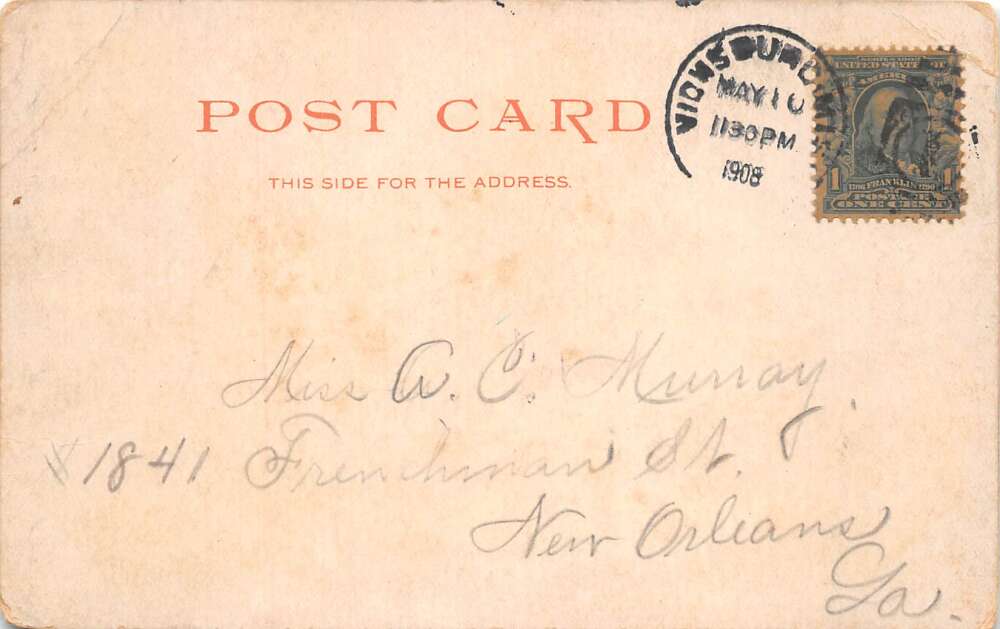 POST CARD
THIS SIDE FOR THE ADDRESS.
VICKSBURG
MAY 10
1130PM
1908
SERIES 1902
UNITED STATES OF
AMERICA
1 1706 FRANKLIN 1790 1
POSTAGE
ONE CENT
Miss A. C. Murray,
1841 Frenchman St.
New Orleans
La.